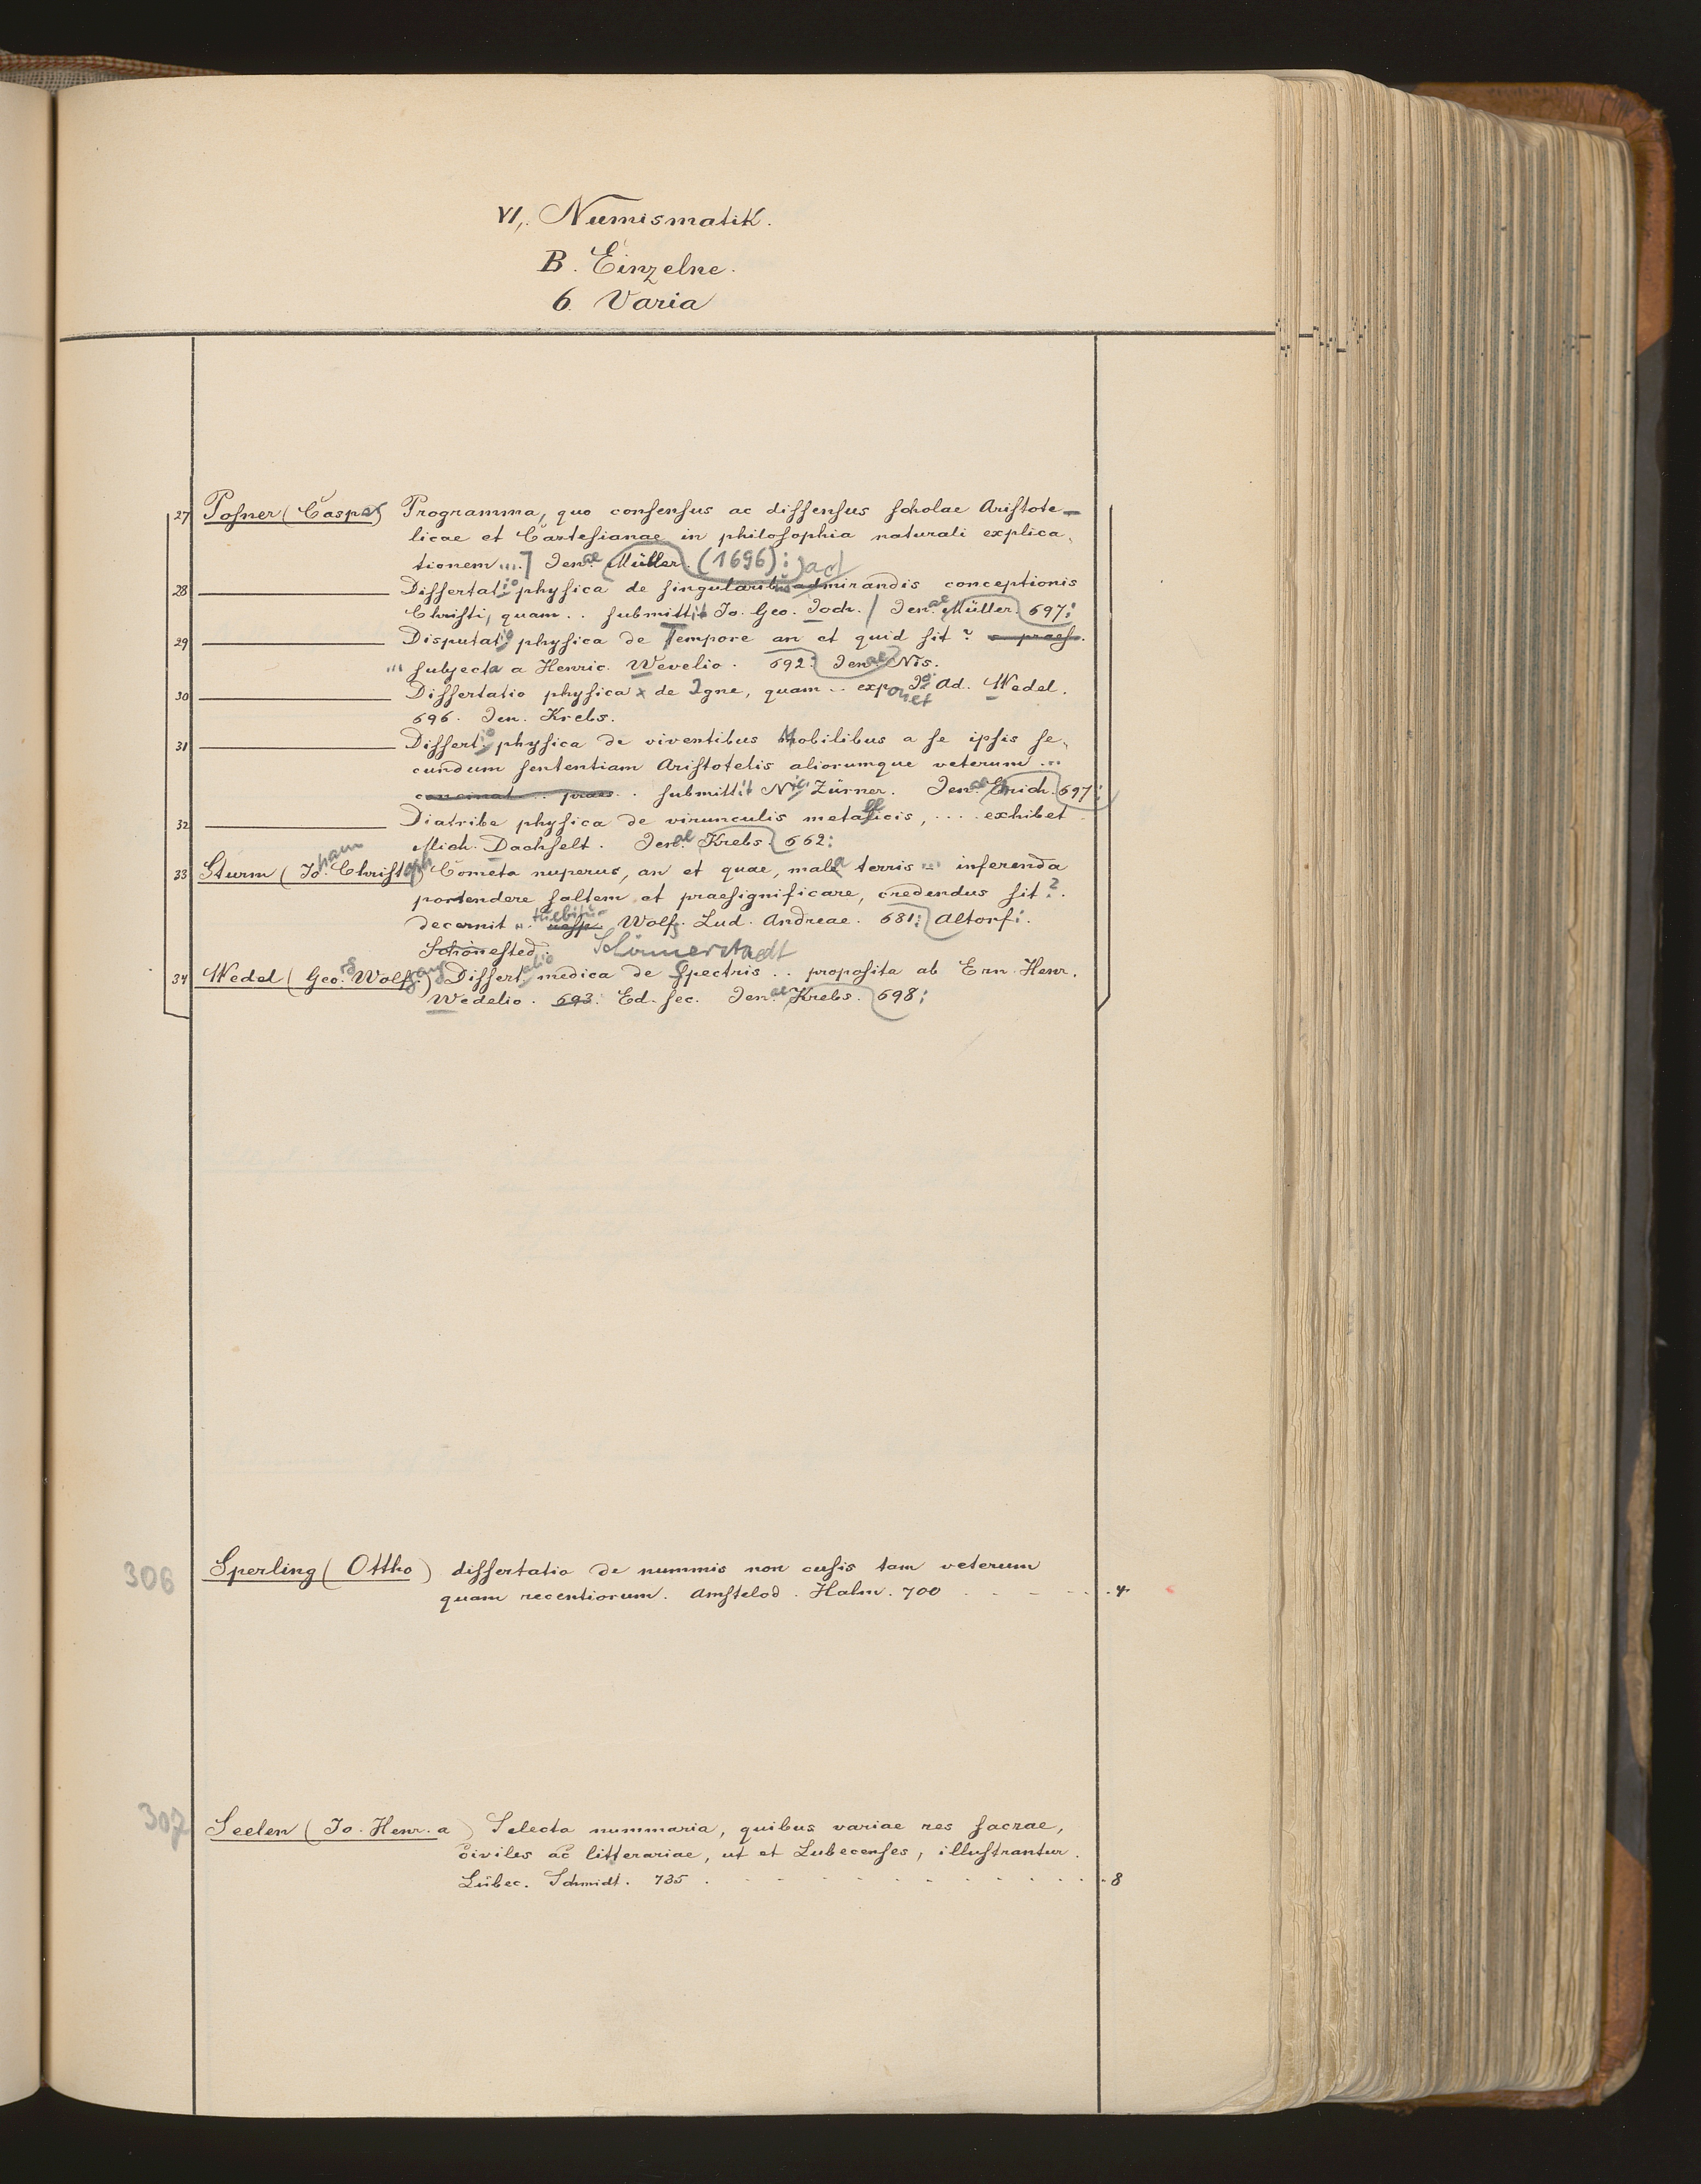 VI,. Numismatik.
B. Einzelne.
6. Varia
27 Posner (Caspar) Programma, quo consensus ac dissensus scholae Aristote-
licae et Cartesianae in philosophia naturali explica,
tionem ...] Jenae Müller. (1696):
28 Dissertatio physica de singularibus admirandis conceptionis
Christi, quam .. submittit Jo. Geo. Joch. / Jenae Müller 697:
29 Disputatio physica de Tempore an et quid sit? praes.
... subjecta a Henric. Wevelio. 692: Jenae Nis.
30 Dissertatio physica x de Igne, quam .. exponet Jo. Ad. Wedel.
696. Jen. Krebs.
31 Dissertio physica de viventibus Mobilibus a se ipsis se,
cundum sententiam Aristotelis aliorumque veterum ...
praes .. submittit Nic. Zürner. Jenae 697:
32 Diatribe physica de virunculis metallicis, .... exhibet
Mich. Dachselt. Jenae Krebs 662:
33 Sturm (Joham Christoph) Cometa nuperus, an et quae, mala terris ... inferenda
portendere saltem at praesignificare, credendus sit?.
decernit .. Wolfg. Lud. Andreae. 681: Altorf:.
Schönested. Schönnerstaedt
34 Wedel (Geo. Wolfgang) Dissertatio medica de Spectris .. proposita ab Ern. Henr.
Wedelio. 693. Ed. sec. Jenae Krebs. 698:
306 Sperling (Ottho) dissertatio de nummis non cusis tam veterum
quam recentiorum. Amstelod. Halm. 700 . . . . 4
307 Seelen (Jo. Henr. a) Selecta nummaria, quibus variae res sacrae,
civiles ac litterariae, ut et Lubecenses, illustrantur.
Lübec. Schmidt. 735 . . . . . . . . . . . . 8